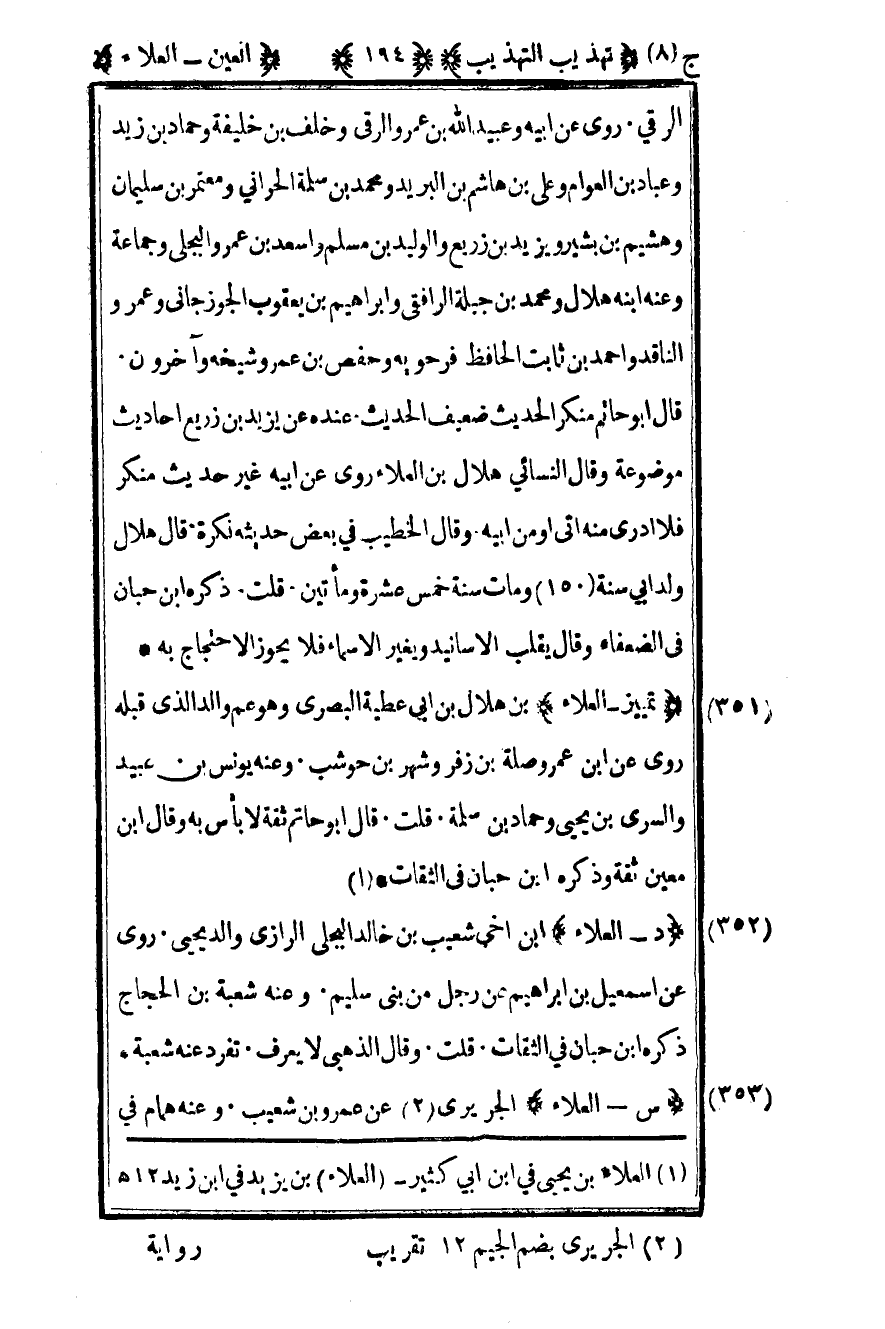 ج (٨) ﴿ تهذيب التهذيب ﴾ ﴿ ١٩٤ ﴾ ﴿ العين ـ العلاء ﴾
الرقي ٠ روى عن ابيه وعبيد الله بن عمرو الرقى وخلف بن خليفة وحماد بن زيد
وعباد بن العوام وعلى بن هاشم بن البريد ومحمد بن سلمة الحراني ومعتمر بن سليمان
وهشيم بن بشير ويزيد بن زريع والوليد بن مسلم واسعد بن عمرو البجلى وجماعة
وعنه ابنه هلال ومحمد بن جبلة الرافقى وابراهيم بن يعقوب الجوزجانى وعمر و
الناقد واحمد بن ثابت الحافظ فرحويه وحفص بن عمر وشيخه وآخرون ٠
قال ابو حاتم منكر الحديث ضعيف الحديث ٠ عنده عن يزيد بن زريع احاديث
موضوعة وقال النسائي هلال بن العلاء روى عن ابيه غير حديث منكر
فلا ادرى منه اتى او من ابيه ٠ وقال الخطيب في بعض حديثه نكرة ٠ قال هلال
ولد ابي سنة (١٥٠) ومات سنة خمس عشرة ومأتين ٠ قلت ٠ ذكره ابن حبان
فى الضعفاء وقال يقلب الاسانيد ويغير الاسماء فلا يجوز الاحتجاج به *
(٣٥١) ﴿ تمييز ـ العلاء ﴾ بن هلال بن ابي عطية البصرى وهو عم والد الذى قبله
روى عن ابن عمر وصلة بن زفر وشهر بن حوشب ٠ وعنه يونس بن عبيد
والسرى بن يحيى وحماد بن سلمة ٠ قلت ٠ قال ابو حاتم ثقة لا بأس به وقال ابن
معين ثقة وذكره ابن حبان فى الثقات * (١)
(٣٥٢) ﴿ د ـ العلاء ﴾ ابن اخى شعيب بن خالد البجلى الرازى والد يحيى ٠ روى
عن اسمعيل بن ابراهيم عن رجل من بنى سليم ٠ وعنه شعبة بن الحجاج
ذكره ابن حبان في الثقات ٠ قلت ٠ وقال الذهبى لا يعرف ٠ تفرد عنه شعبة *
(٣٥٣) ﴿ س ـ العلاء ﴾ الجريرى (٢) عن عمرو بن شعيب ٠ وعنه همام في
(١) العلاء بن يحيى في ابن ابي كثير ـ (العلاء) بن يزيد في ابن زيد ١٢ ه
(٢) الجريرى بضم الجيم ١٢ تقريب رواية